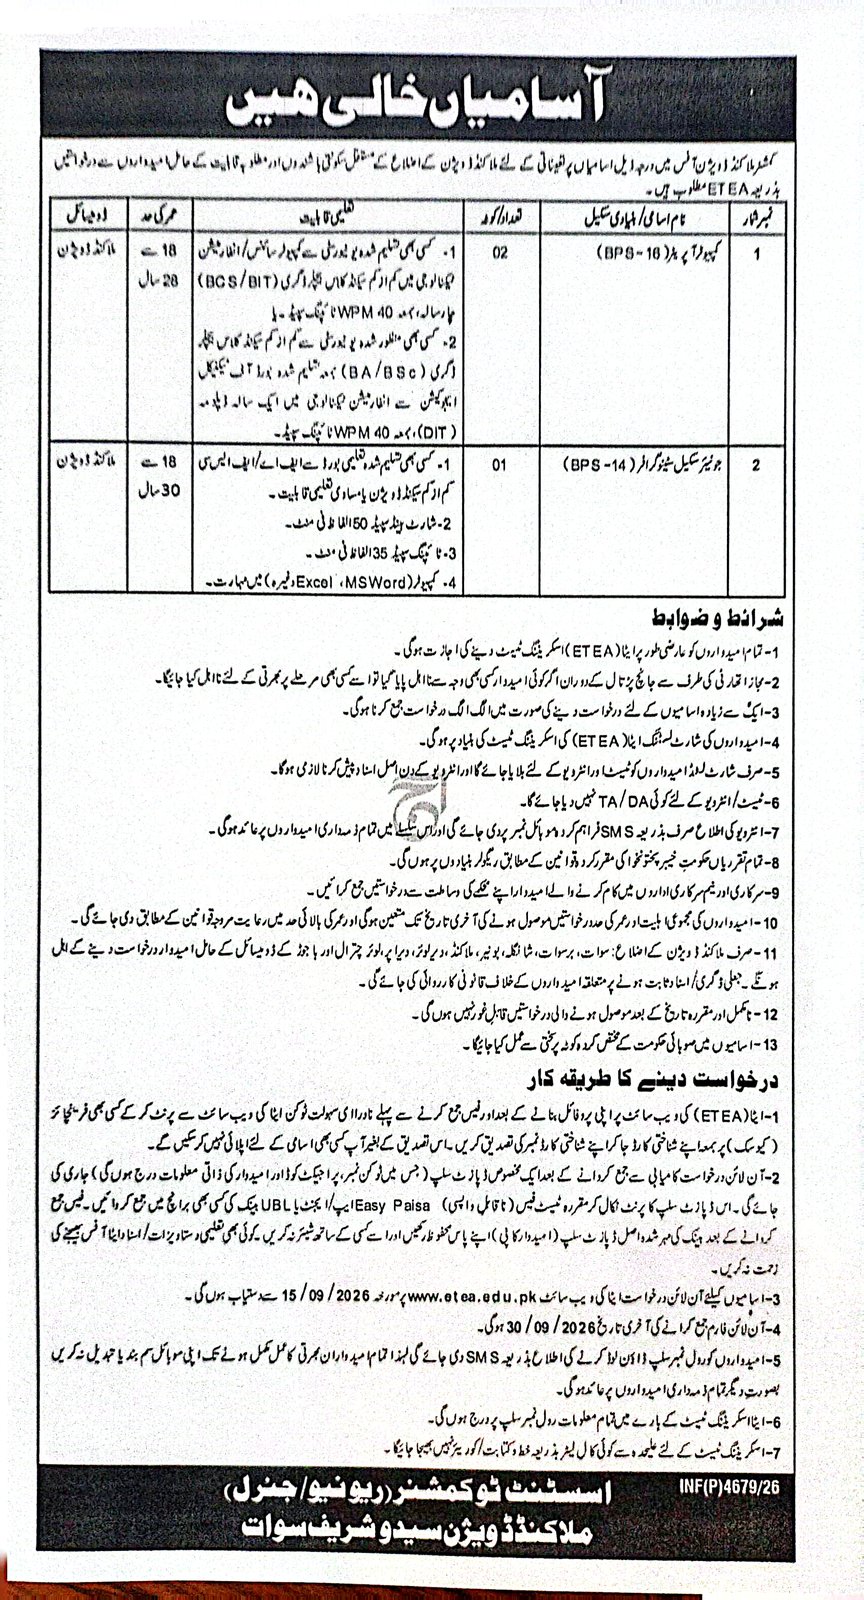 آسامیاں خالی ہیں
کمشنر ملاکنڈ ڈویژن آفس میں درجہ ذیل اسامیاں پر تعیناتی کے لئے ملاکنڈ ڈویژن کے اضلاع کے مستقل سکونتی باشندوں اور مطلوبہ قابلیت کے حامل امیدواروں سے درخواستیں
بذریعہ ETEA مطلوب ہیں۔
نمبر شمار نام اسامی/بنیادی سکیل تعداد/کوٹہ تعلیمی قابلیت عمر کی حد ڈومیسائل
1 کمپیوٹر آپریٹر (BPS-16) 02 1۔ کسی بھی تسلیم شدہ یونیورسٹی سے کمپیوٹر سائنس/انفارمیشن 18 سے ملاکنڈ ڈویژن
ٹیکنالوجی میں کم از کم سیکنڈ کلاس بیچلر ڈگری (BCS/BIT) 28 سال
چار سالہ، بمعہ 40 WPM ٹائپنگ سپیڈ۔ یا
2۔ کسی بھی منظور شدہ یونیورسٹی سے کم از کم سیکنڈ کلاس بیچلر
ڈگری (BA/BSc) بمعہ تسلیم شدہ بورڈ آف ٹیکنیکل
ایجوکیشن سے انفارمیشن ٹیکنالوجی میں ایک سالہ ڈپلومہ
(DIT)، بمعہ 40 WPM ٹائپنگ سپیڈ۔
2 جونیئر سکیل سٹینوگرافر (BPS-14) 01 1۔ کسی بھی تسلیم شدہ تعلیمی بورڈ سے ایف اے/ایف ایس سی 18 سے ملاکنڈ ڈویژن
کم از کم سیکنڈ ڈویژن یا مساوی تعلیمی قابلیت۔ 30 سال
2۔ شارٹ ہینڈ سپیڈ 50 الفاظ فی منٹ۔
3۔ ٹائپنگ سپیڈ 35 الفاظ فی منٹ۔
4۔ کمپیوٹر (Excel، MSWord وغیرہ) میں مہارت۔
شرائط و ضوابط
1- تمام امیدواروں کو عارضی طور پر ایٹا (ETEA) اسکریننگ ٹیسٹ دینے کی اجازت ہوگی۔
2- مجاز اتھارٹی کی طرف سے جانچ پڑتال کے دوران اگر کوئی امیدوار کسی بھی وجہ سے نااہل پایا گیا تو اسے کسی بھی مرحلے پر بھرتی کے لئے نااہل کیا جائیگا۔
3- ایک سے زیادہ اسامیوں کے لئے درخواست دینے کی صورت میں الگ الگ درخواست جمع کرنا ہوگی۔
4- امیدواروں کی شارٹ لسٹنگ ایٹا (ETEA) کی اسکریننگ ٹیسٹ کی بنیاد پر ہوگی۔
5- صرف شارٹ لسٹڈ امیدواروں کو ٹیسٹ اور انٹرویو کے لئے بلایا جائے گا اور انٹرویو کے دن اصل اسناد پیش کرنا لازمی ہوگا۔
6- ٹیسٹ/انٹرویو کے لئے کوئی TA/DA نہیں دیا جائے گا۔
7- انٹرویو کی اطلاع صرف بذریعہ SMS فراہم کردہ موبائل نمبر پر دی جائے گی اور اس سلسلے میں تمام ذمہ داری امیدواروں پر عائد ہوگی۔
8- تمام تقرریاں حکومت خیبر پختونخوا کی مقرر کردہ قوانین کے مطابق ریگولر بنیادوں پر ہوں گی۔
9- سرکاری اور نیم سرکاری اداروں میں کام کرنے والے امیدوار اپنے محکمے کی وساطت سے درخواستیں جمع کرائیں۔
10- امیدواروں کی مجموعی اہلیت اور عمر کی حد درخواستیں موصول ہونے کی آخری تاریخ تک متعین ہوگی اور عمر کی بالائی حد میں رعایت مروجہ قوانین کے مطابق دی جائے گی۔
11- صرف ملاکنڈ ڈویژن کے اضلاع: سوات، برسوات، شانگلہ، بونیر، ملاکنڈ، دیر لوئر، دیر اپر، لوئر چترال اور باجوڑ کے ڈومیسائل کے حامل امیدوار درخواست دینے کے اہل
ہونگے۔ جعلی ڈگری/اسناد ثابت ہونے پر متعلقہ امیدواروں کے خلاف قانونی کارروائی کی جائے گی۔
12- نامکمل اور مقررہ تاریخ کے بعد موصول ہونے والی درخواستیں قابل غور نہیں ہوں گی۔
13- اسامیوں میں صوبائی حکومت کے مختص کردہ کوٹہ پر سختی سے عمل کیا جائیگا۔
درخواست دینے کا طریقہ کار
1- ایٹا (ETEA) کی ویب سائٹ پر اپنی پروفائل بنانے کے بعد اور فیس جمع کرنے سے پہلے نادرا ای سہولت ٹوکن ایٹا کی ویب سائٹ سے پرنٹ کر کے کسی بھی فرینچائز
(کیوسک) پر بمعہ اپنے شناختی کارڈ جا کر اپنے شناختی کارڈ نمبر کی تصدیق کریں۔ اس تصدیق کے بغیر آپ کسی بھی اسامی کے لئے اپلائی نہیں کر سکیں گے۔
2- آن لائن درخواست کامیابی سے جمع کردانے کے بعد ایک مخصوص ڈپازٹ سلپ (جس میں ٹوکن نمبر، پراجیکٹ کوڈ اور امیدوار کی ذاتی معلومات درج ہوں گی) جاری کی
جائے گی۔ اس ڈپازٹ سلپ کا پرنٹ نکال کر مقررہ ٹیسٹ فیس (ناقابل واپسی) Easy Paisa ایپ/ایجنٹ یا UBL بینک کی کسی بھی برانچ میں جمع کروائیں۔ فیس جمع
کروانے کے بعد بینک کی مہر شدہ اصل ڈپازٹ سلپ (امیدوار کاپی) اپنے پاس محفوظ رکھیں اور اسے کسی کے ساتھ شیئر نہ کریں۔ کوئی بھی تعلیمی دستاویزات/اسناد ایٹا آفس بھیجنے کی
زحمت نہ کریں۔
3- اسامیوں کیلئے آن لائن درخواست ایٹا کی ویب سائٹ www.etea.edu.pk پر مورخہ 15/09/2026 سے دستیاب ہوں گی۔
4- آن لائن فارم جمع کرانے کی آخری تاریخ 30/09/2026 ہوگی۔
5- امیدواروں کو رول نمبر سلپ ڈاؤن لوڈ کرنے کی اطلاع بذریعہ SMS دی جائے گی لہذا تمام امیدواران بھرتی کا عمل مکمل ہونے تک اپنی موبائل سم بند یا تبدیل نہ کریں
بصورت دیگر تمام ذمہ داری امیدواروں پر عائد ہوگی۔
6- ایٹا اسکریننگ ٹیسٹ کے بارے میں تمام معلومات رول نمبر سلپ پر درج ہوں گی۔
7- اسکریننگ ٹیسٹ کے لئے علیحدہ سے کوئی کال لیٹر بذریعہ خط و کتابت/کوریئر نہیں بھیجا جائیگا۔
INF(P)4679/26
اسسٹنٹ ٹو کمشنر (ریونیو/جنرل)
ملاکنڈ ڈویژن سیدو شریف سوات